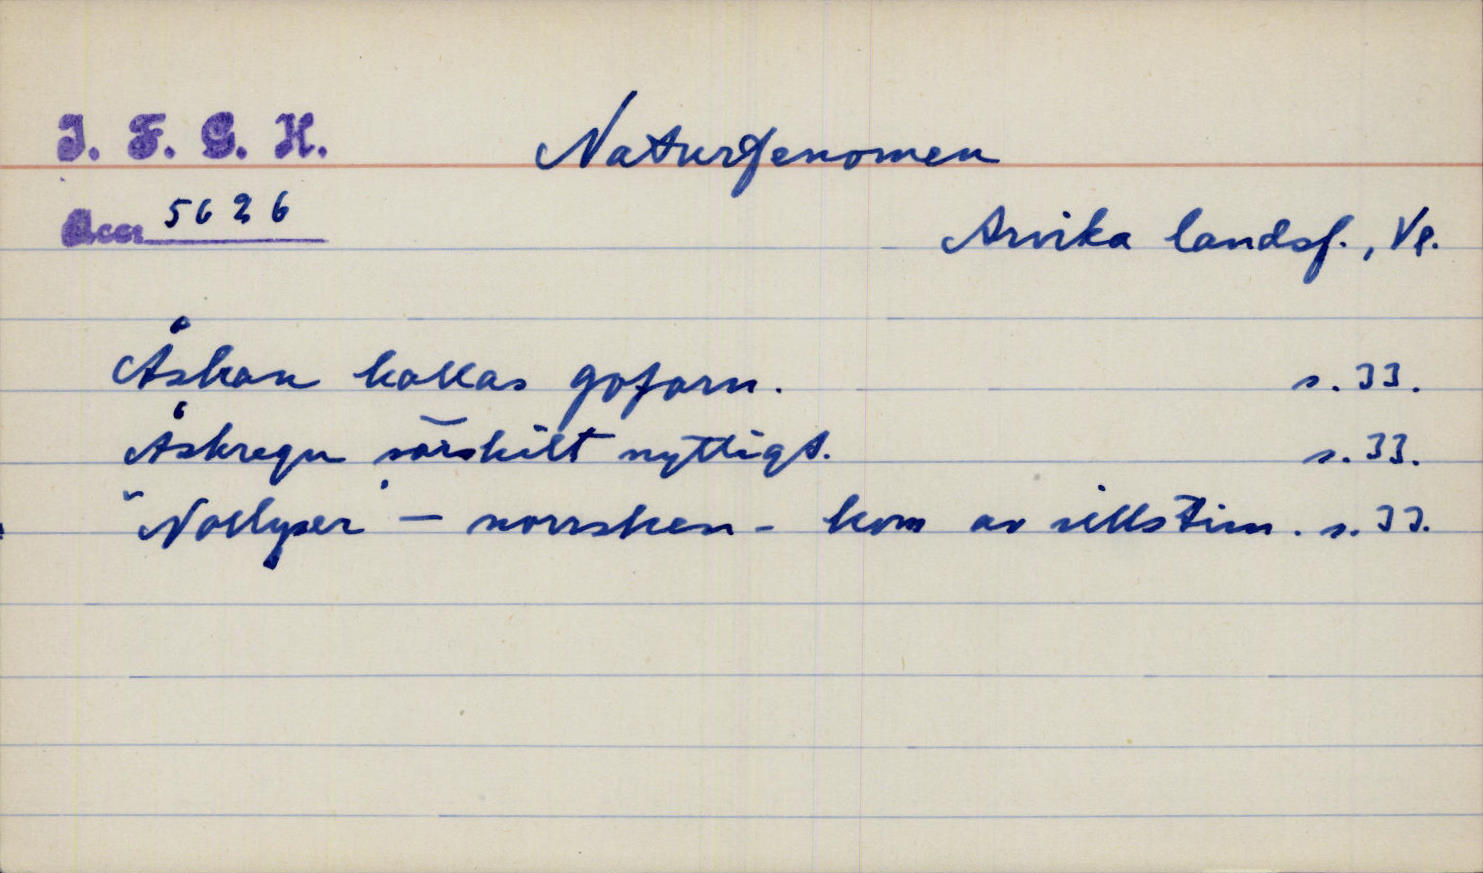 I. F. G. H. Naturfenomen
Acc. 5626
Arvika landsf., Vg.
Åskan kallas gofarn. s. 33.
Åskregn särskilt nyttigt. s. 33.
"Nollyser" – norrsken – kom av sillstim. s. 33.